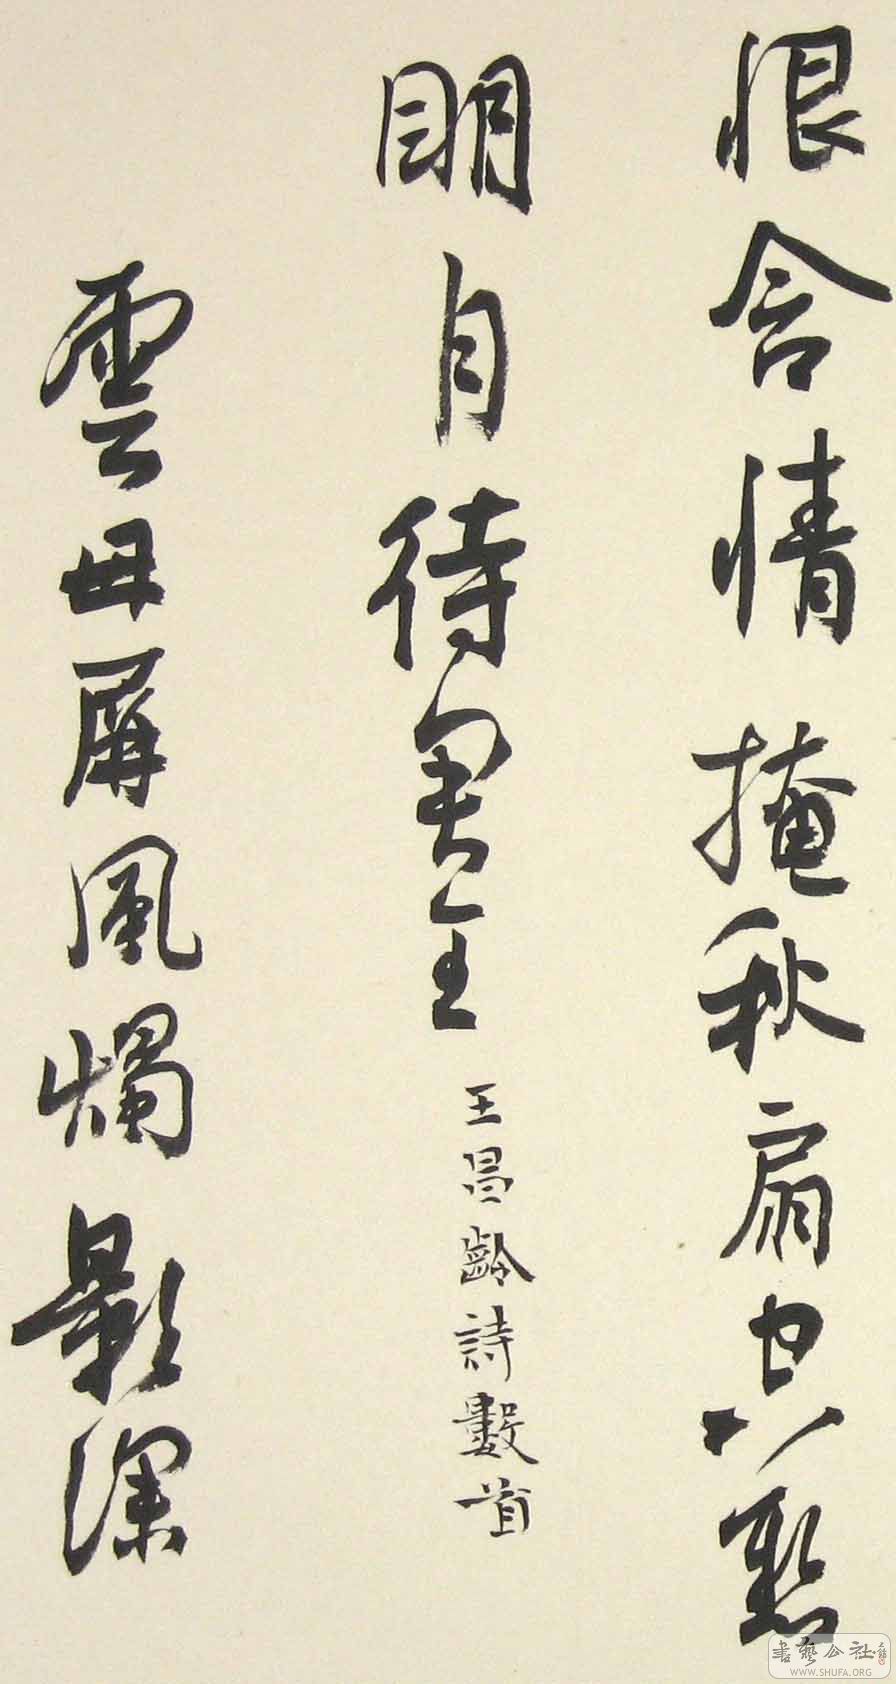 恨含情掩秋扇空懸
明月待君王
王昌齡詩數首
雲母屏風燭影深
書藝公社
WWW.SHUFA.ORG